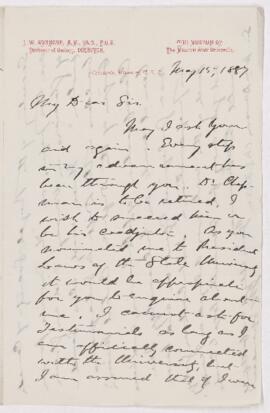 The Museum of
The Ohio State University.
May 15, 1887
My Dear Sir
May I ask your
aid again. Every step
in my advancement has
been through you. Dr.
is to be retired. I
wish to succeed him or
be his coadjutor. As you
nominated me to President
of the State University
it would be appropriate
for you to enquire about
me. I cannot ask for
Testimonials as long as I
am officially connected
with the University, but
I am assured that if I were